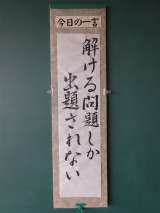 今日の一言
解ける問題しか
出題されない